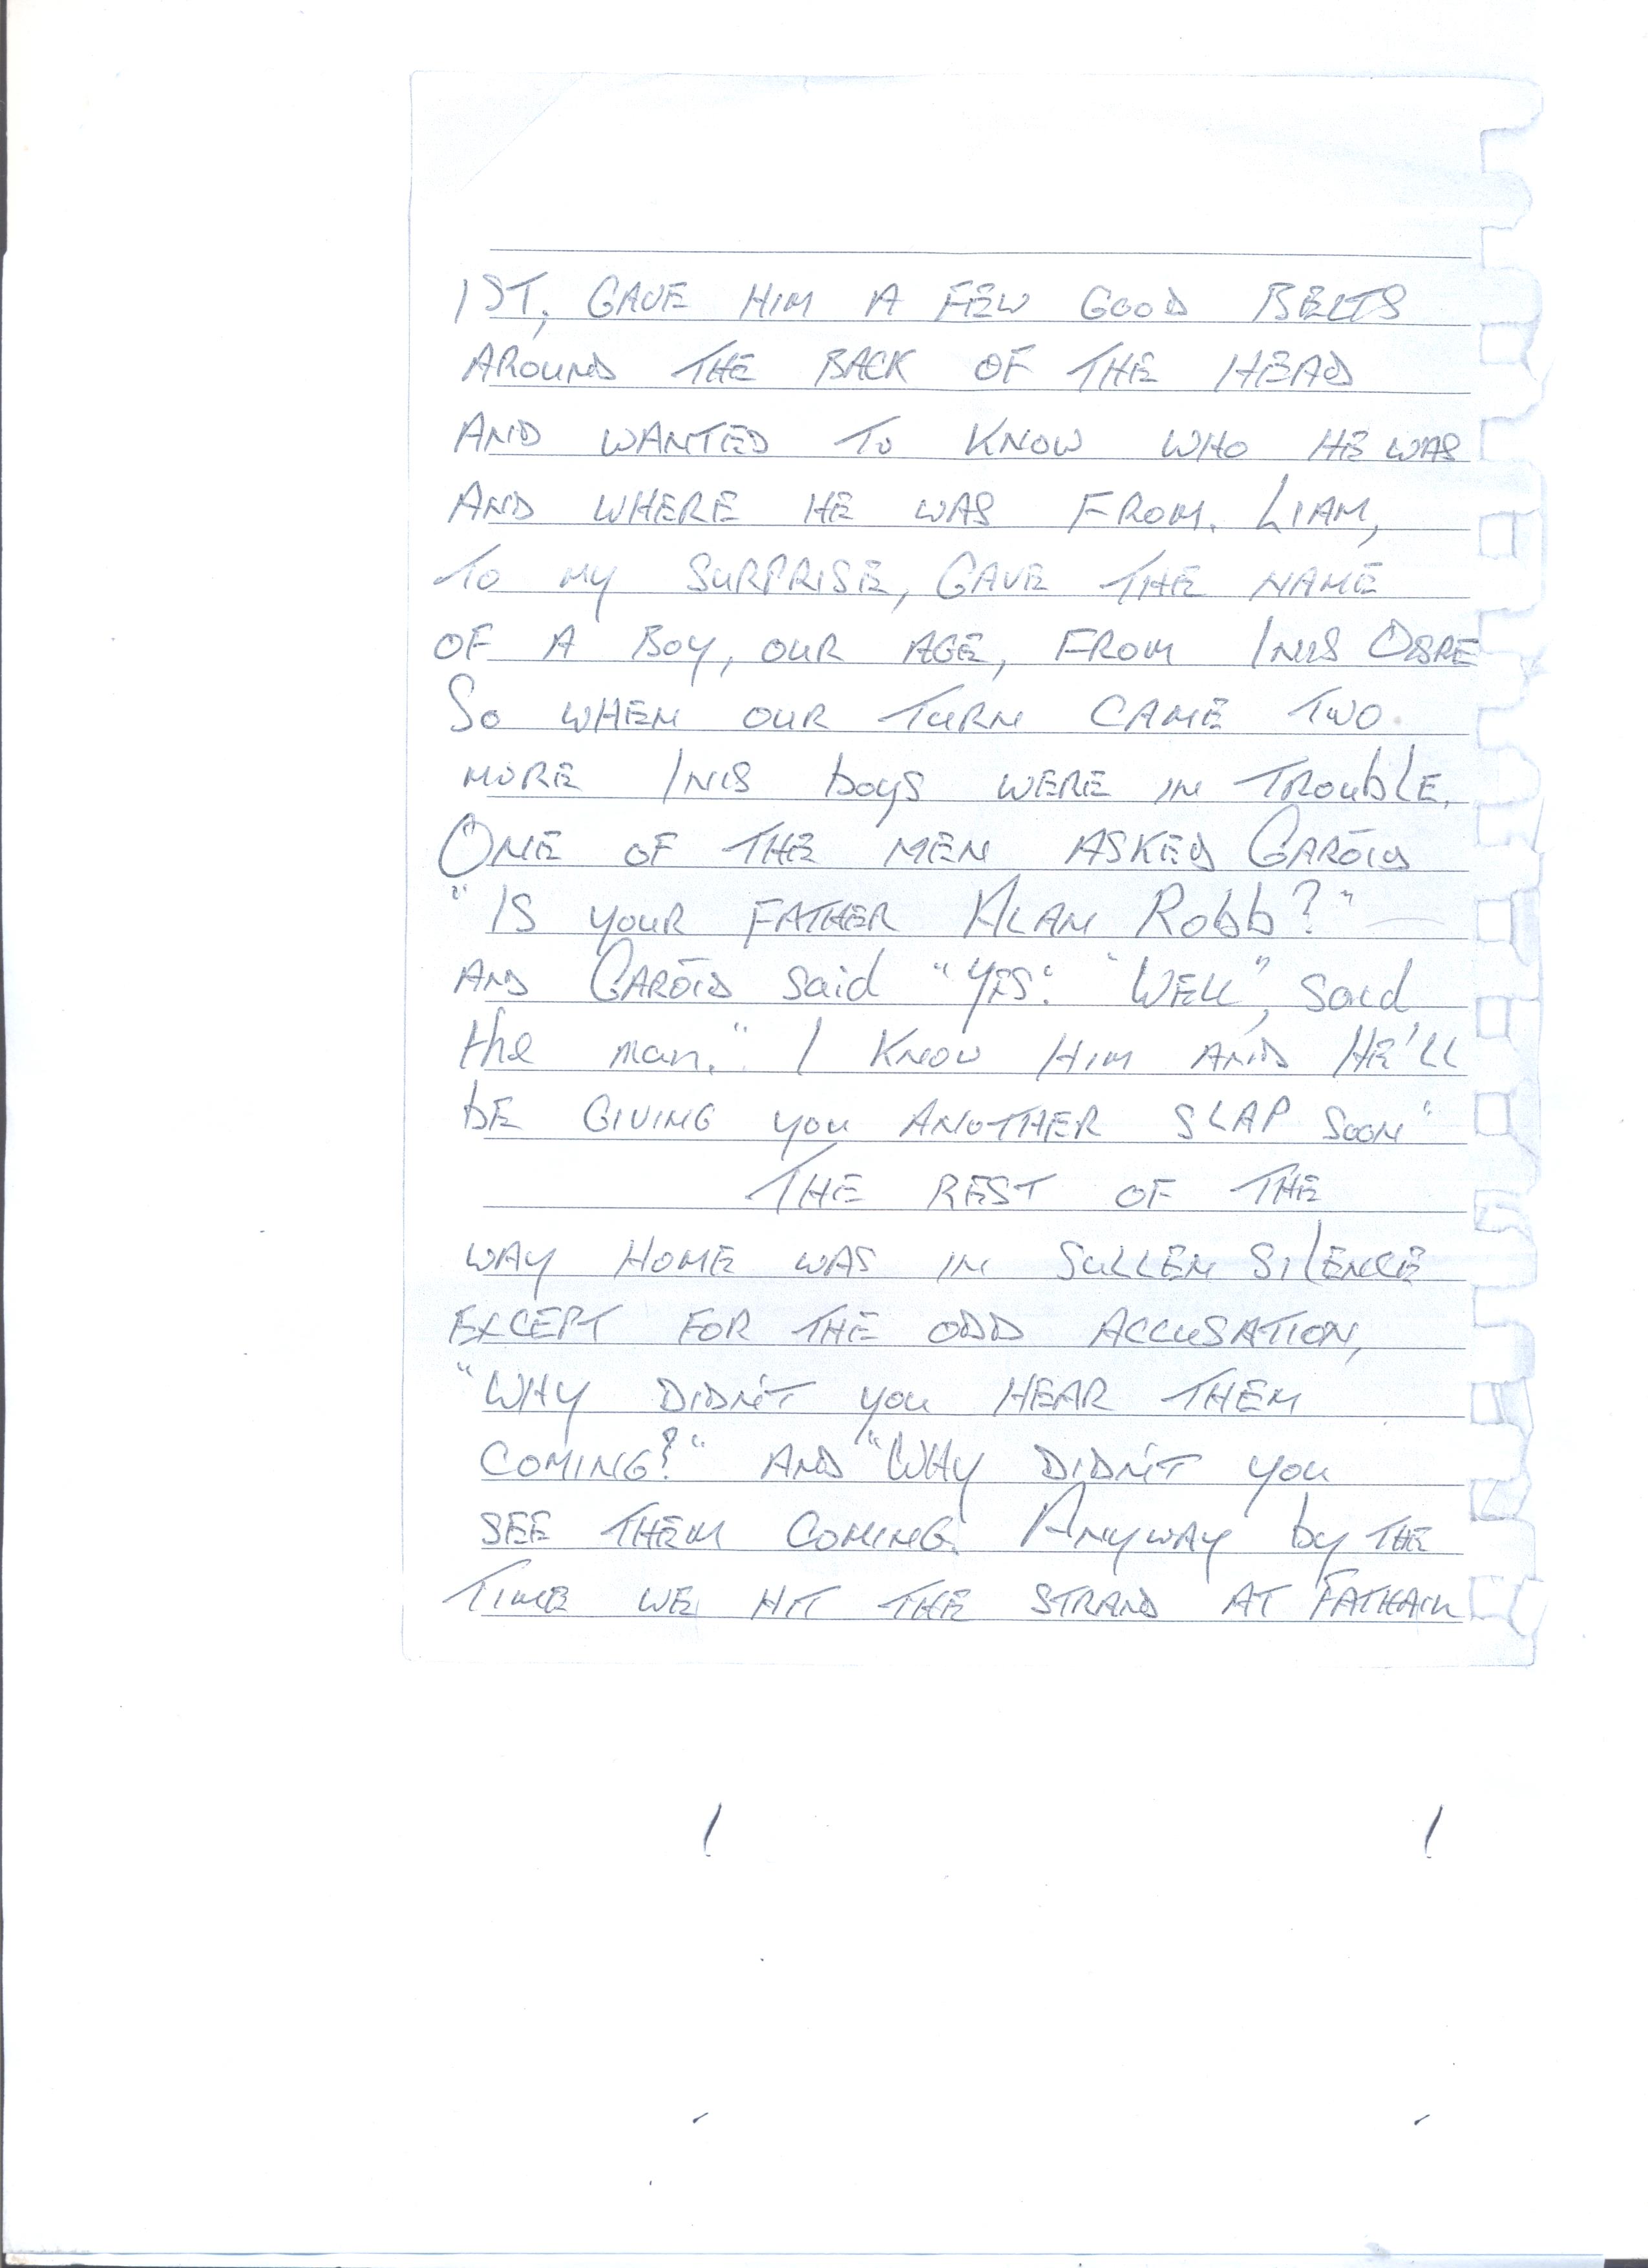 1ST, GAVE HIM A FEW GOOD BELTS
AROUND THE BACK OF THE HEAD
AND WANTED TO KNOW WHO HE WAS
AND WHERE HE WAS FROM. LIAM,
TO MY SURPRISE, GAVE THE NAME
OF A BOY, OUR AGE, FROM INIS
SO WHEN OUR TURN CAME TWO
MORE INIS boys WERE IN TROUbLE.
ONE OF THE MEN ASKED GARÓID
"IS YOUR FATHER ALAN Robb?"
AND GARÓID said "YES". "WELL", said
the man." I KNOW HIM AND HE'LL
bE GIVING you ANOTHER SLAP SOON"
THE REST OF THE
WAY HOME WAS IN SULLEN SILENCE
EXCEPT FOR THE ODD ACCUSATION,
"WHY DIDN'T you HEAR THEM
COMING?" AND "WHY DIDN'T you
SEE THEM COMING. ANYWAY by THE
TIME WE HIT THE STRAND AT